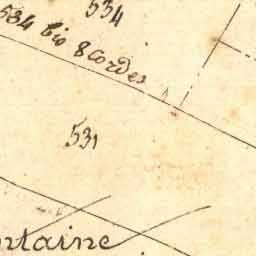 534
534 bis 8 Cordes
531
ntaine